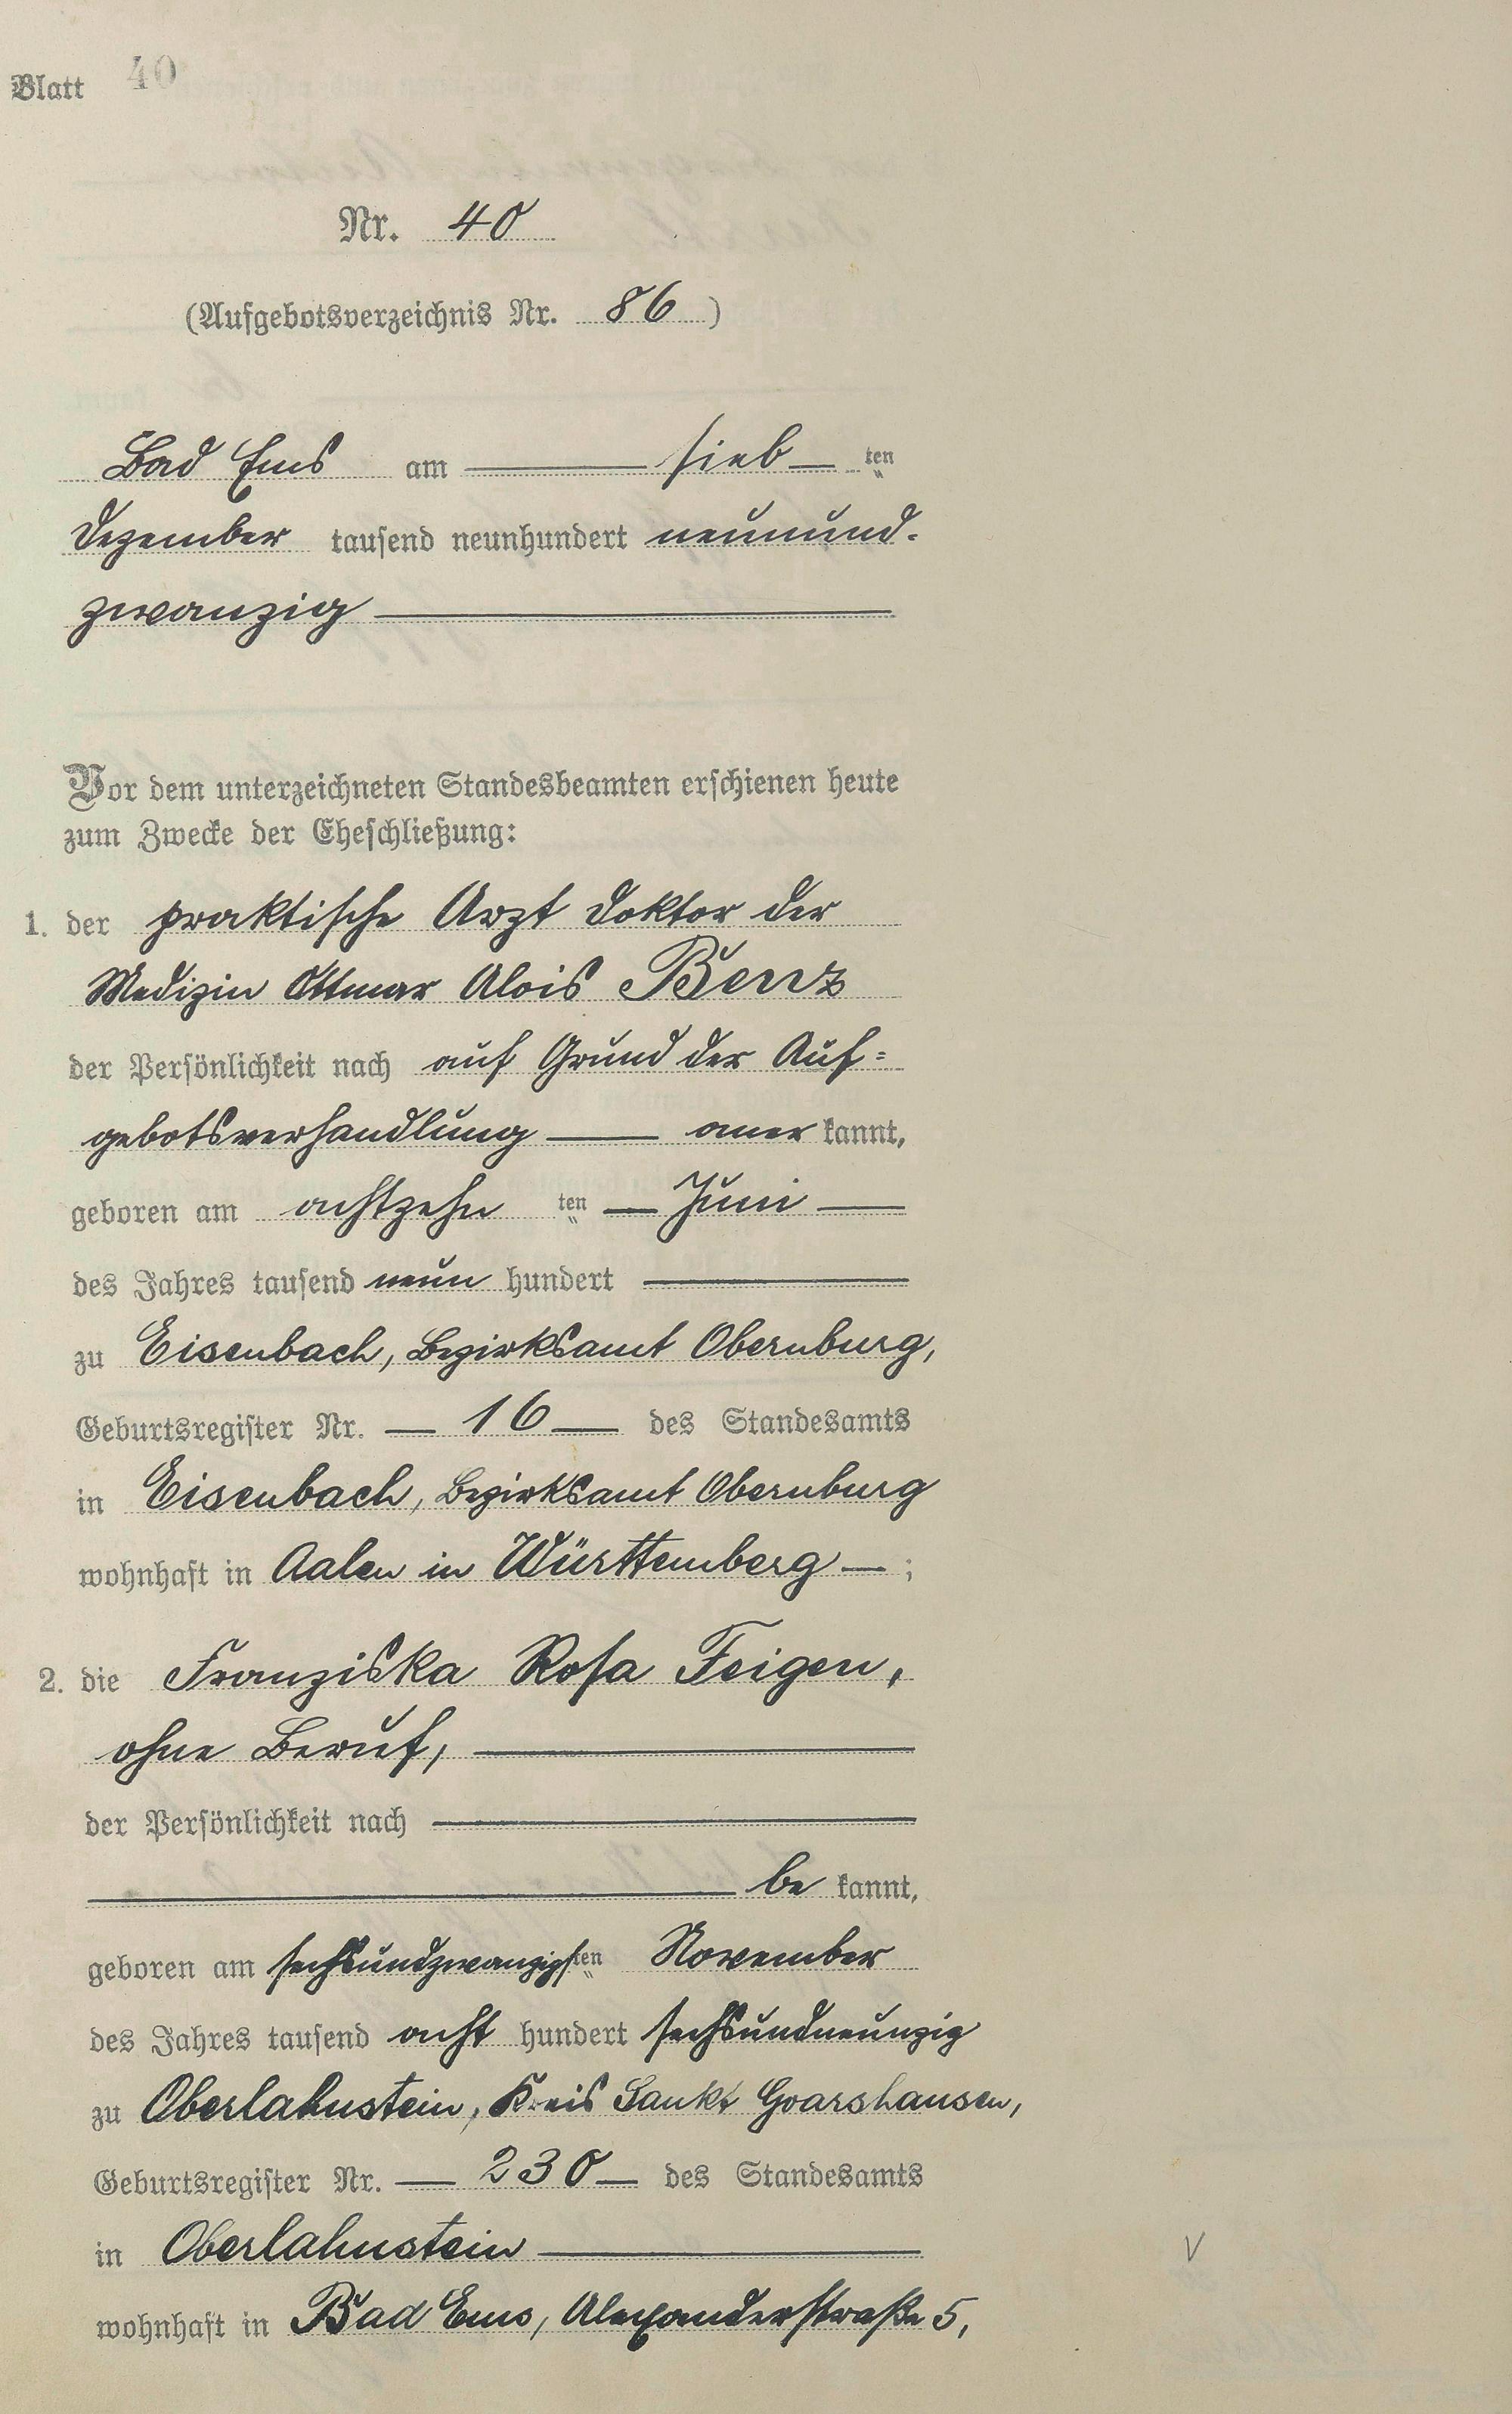 Blatt 40
Nr. 40
(Aufgebotsverzeichnis Nr. 86)
Bad Ems am sieb ten
Dezember tausend neunhundert neunund-
zwanzig
Vor dem unterzeichneten Standesbeamten erschienen heute
zum Zwecke der Eheschließung:
1. der praktische Arzt Doktor der
Medizin Ottmar Alois Benz
der Persönlichkeit nach auf Grund der Auf=
gebotsverhandlung aner kannt,
geboren am achtzehn ten Juni
des Jahres tausend neun hundert
zu Eisenbach, Bezirksamt Obernburg,
Geburtsregister Nr. 16 des Standesamts
in Eisenbach, Bezirksamt Obernburg
wohnhaft in Aalen in Württemberg ;
2. die Franziska Rosa Feigen,
ohne Beruf,
der Persönlichkeit nach
be kannt,
geboren am sechsundzwanzigsten November
des Jahres tausend acht hundert sechsundneunzig
zu Oberlahnstein, Kreis Sankt Goarshausen,
Geburtsregister Nr. 230 des Standesamts
in Oberlahnstein
wohnhaft in Bad Ems, Alexanderstraße 5,